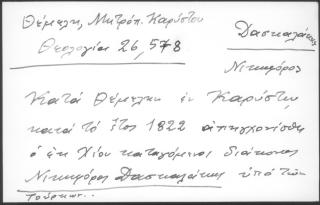 Θέμελη, Μητρόπ. Καρύστου
Θεολογία 26, 578
Δασκαλάκης
Νικηφόρος
Κατά Θέμελην ἐν Καρύστῳ
κατά τό ἔτος 1822 ἀπηγχονίσθη
ὁ ἐκ Χίου καταγόμενος διάκονος
Νικηφόρος Δασκαλάκης ὑπό τῶν
Τούρκων..